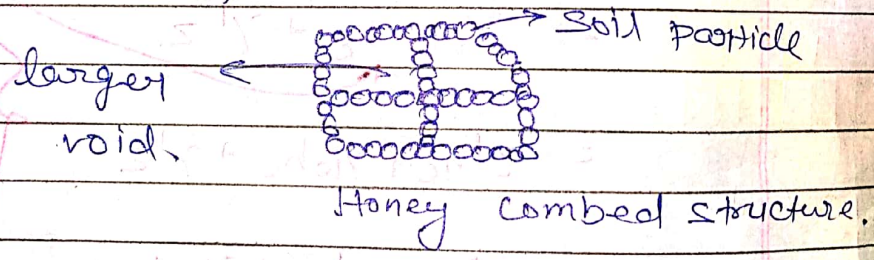 Soil particle
larger
void.
Honey combed structure.